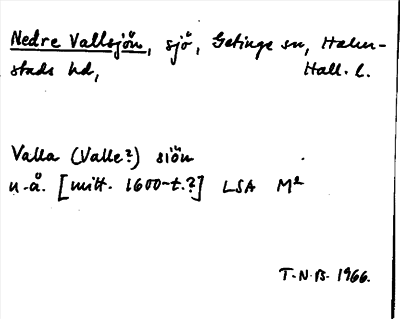 Nedre Vallsjön, sjö, Getinge sn, Halm-
stads hd, Hall. l.
Valla (Valle?) siön
u.å. [mitt. 1600-t.?] LSA M²
T.N.B. 1966.